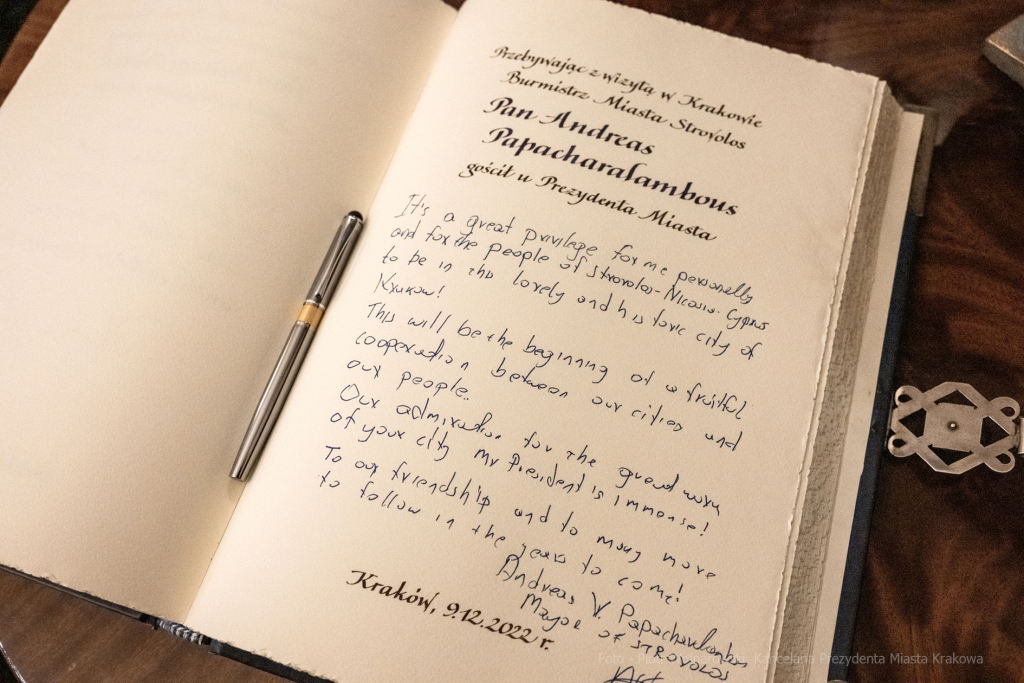 Przebywając z wizytą w Krakowie
Burmistrz Miasta Strovolos
Pan Andreas
Papacharalambous
gościł u Prezydenta Miasta
It's a great privilege for me personally
and for the people of Strovolos-Nicosia. Cyprus
to be in this lovely and historic city of
Krakow!
This will be the beginning of a fruitful
cooperation between our cities and
our people.
Our admiration for the great work
of your city Mr President is immense!
To our friendship and to many more
to follow in the years to come!
Andreas V. Papacharalambous
Mayor of STROVOLOS
Kraków, 9.12.2022 r.
Kancelaria Prezydenta Miasta Krakowa